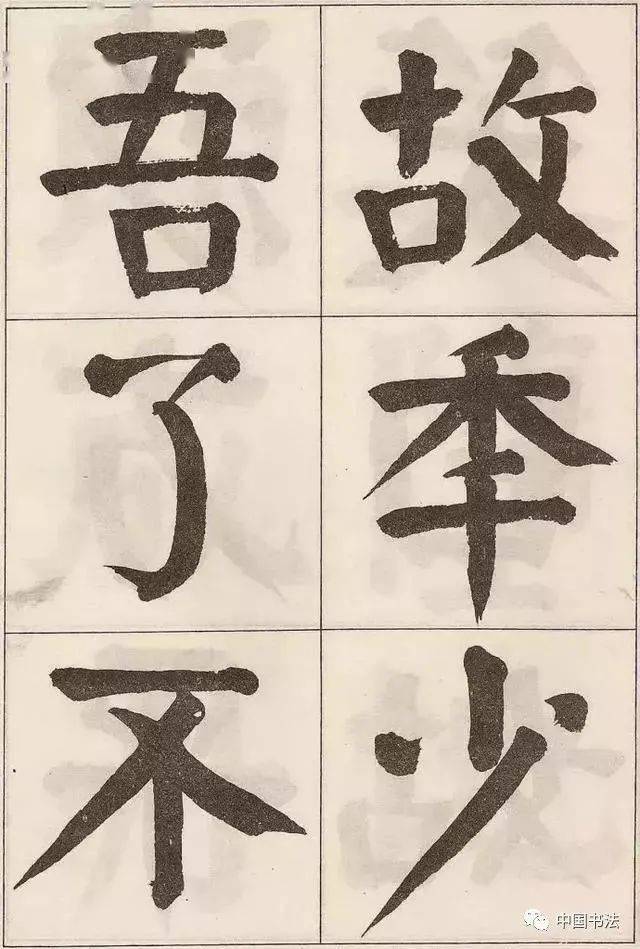 故秊少
吾了不
中国书法